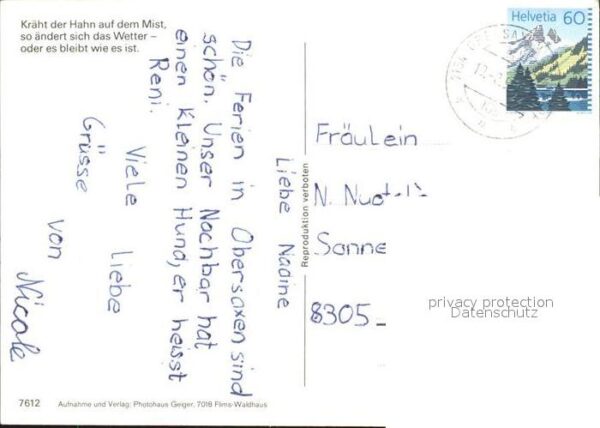 Kräht der Hahn auf dem Mist,
so ändert sich das Wetter –
oder es bleibt wie es ist.
Liebe Nadine
Die Ferien in Obersaxen sind
schön. Unser Nachbar hat
einen kleinen Hund, er heisst
Reni.
Viele liebe
Grüsse von
Nicole
Reproduktion verboten
Helvetia 60
Fräulein
N.
Sonne
8305
privacy protection
Datenschutz
7612 Aufnahme und Verlag: Photohaus Geiger, 7018 Flims-Waldhaus